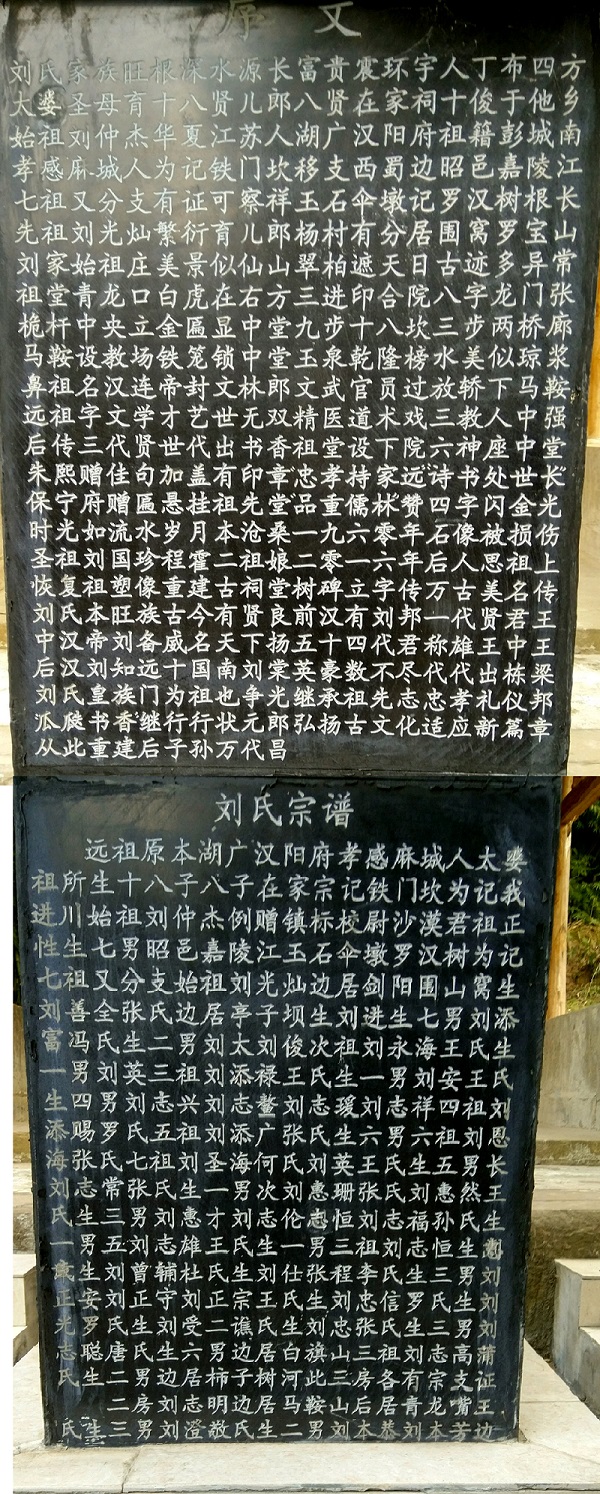 序文
刘氏家族旺根深水源长富贵震环宇人丁布四方
太婆圣母育十八贤儿郎八贤在家祠十俊于他乡
始祖刘仲杰华夏江苏人湖广汉阳府祖籍彭城南
孝感麻城人为记铁门坎移支西蜀边昭邑嘉陵江
七祖又分支有证可察祥玉石伞墩记罗汉树根长
先祖刘光灿繁衍育儿郎杨村有分居围窝罗宝山
刘家始祖庄美景似仙山翠柏遮天日古迹多异常
祖堂青龙口白虎在右方三进印合院八字龙门张
桅杆中央立金匾显中堂九步十八坎三步两桥廊
马鞍设教场铁笼锁中堂玉泉乾隆榜水美似琼浆
鼻祖名汉连帝封文林郎文武官员过放轿下马鞍
远祖字文学才艺世无双精医道术戏三教人中强
后传三代贤世代出书香祖堂设下院六神座中堂
朱熙赠佳句加盖有印章忠孝持家远诗书处世长
保宁府赠匾悬挂祖先堂品重儒林赞四字闪金光
时光如流水岁月本沧桑一九六零年石像被损伤
圣祖刘国珍程霍二祖娘二零一六年后人思祖上
恢复祖塑像重建古祠堂树碑立字传万古美名传
刘氏本旺族古今有贤良前汉有刘邦一代贤君王
中汉帝刘备威名天下扬五十四代君称雄王中王
后汉刘知远十国南刘棠英豪数不尽忠代出栋梁
刘氏皇族门为祖也争光继承祖先志忠孝礼仪邦
瓜瓞书香继行行状元郎弘扬古文化适应新篇章
从此重建后子孙万代昌
刘氏宗谱
远祖原本湖广汉阳府孝感麻城人太婆
祖所生十八子八子在家宗记铁门坎为记我
进川始祖刘仲杰例赠镇标校尉沙漠君祖正
性生七男昭邑嘉陵江玉石伞墩罗汉树为记
七祖又分支始祖刘光灿边居剑阳围山窝生
刘善全张氏边居亭子坝生刘进生七男刘添
富冯氏生二男刘太刘俊次祖刘永海王氏生
一男刘英三祖刘添禄王氏生一男刘安王氏
生四男刘志兴刘志鳌刘志瑗刘志祥四祖刘
添赐罗氏五祖刘添广张氏生六男六祖刘恩
海张氏七祖刘圣海何氏刘英王氏五男长
刘志常张氏生一男次刘惠珊张氏惠然王
氏生三男刘惠才刘志伦志恒刘志福孙氏生
一男五刘志雄王氏生一男三祖刘志恒生
生刘曾辅杜氏生刘仕张程李氏生三男刘
正安刘正守刘正宗王氏生刘忠信罗氏生刘
光罗氏生刘受二谯氏生刘忠张氏生三男刘
志聪唐氏男六男边居白旗山三祖刘志高蒲
氏生二男居柿子树河此三房各有宗支证
二房志明边居马鞍山后居青龙嘴王
氏生三男刘澄敬氏生二男刘本恭刘本芳边